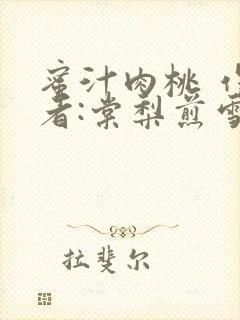 蜜汁肉桃
者:棠梨煎雪
拉斐尔